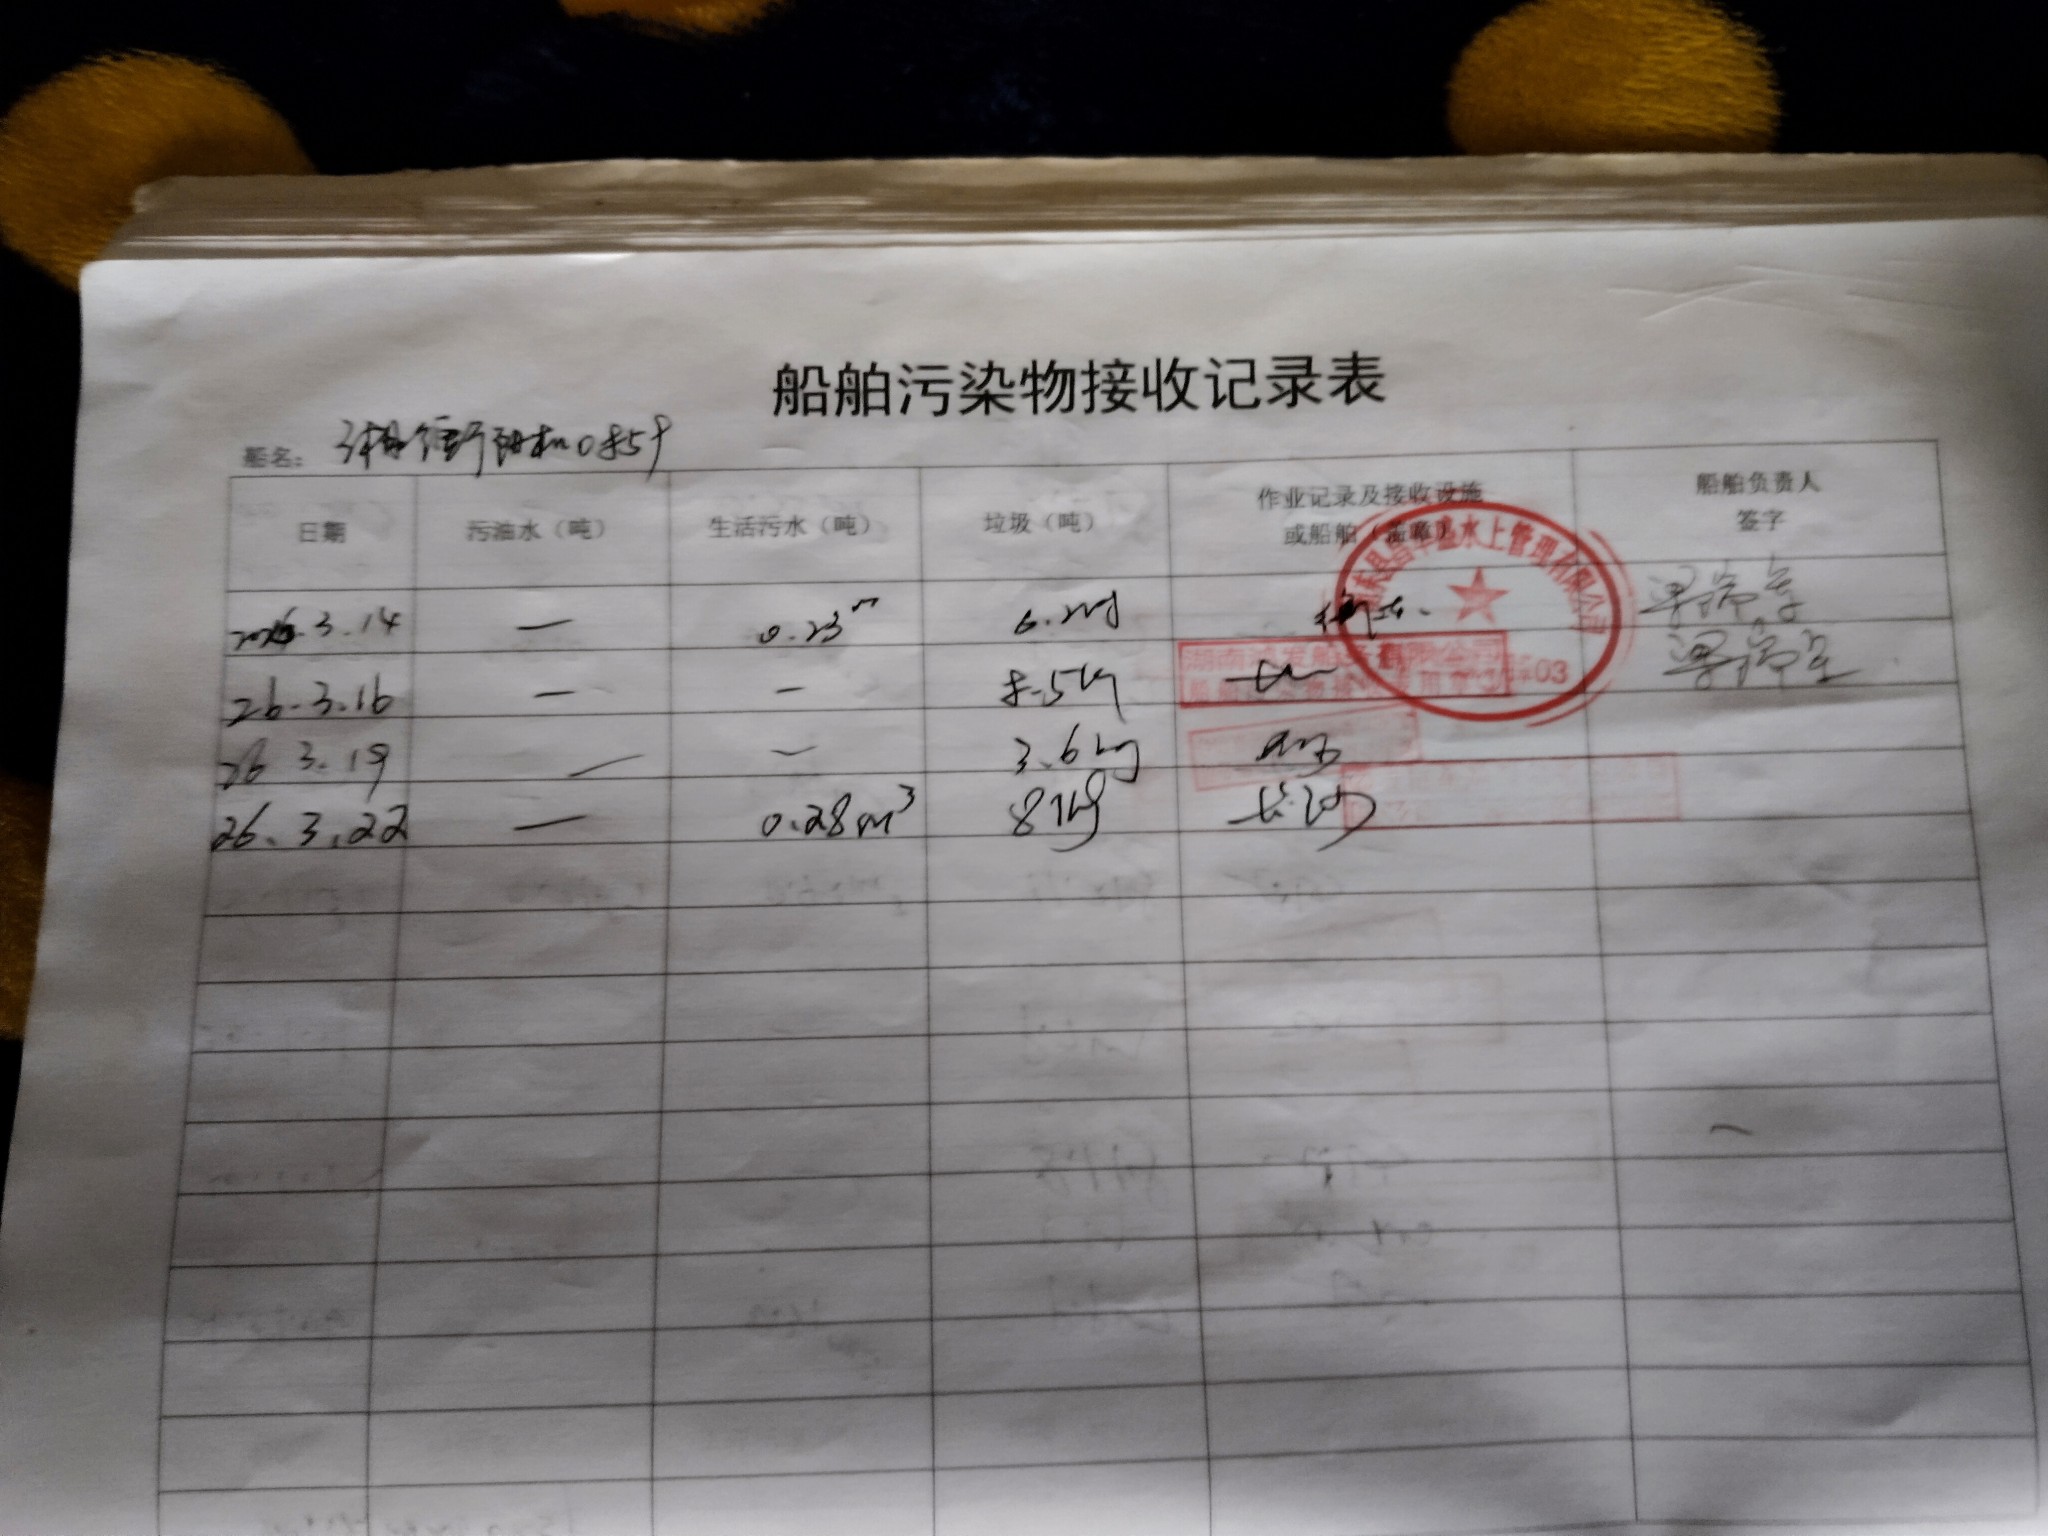 船舶污染物接收记录表
船名:
日期 污油水（吨） 生活污水（吨） 垃圾（吨） 作业记录及接收设施或船舶（盖章） 船舶负责人签字
2026.3.14 — 0.23 6.2kg
26.3.16 — — 8.5kg
26 3.19 — — 3.6kg
26.3.22 — 0.28m³ 8kg 长沙
水上管理有限公司
湖南 发船 有限公司